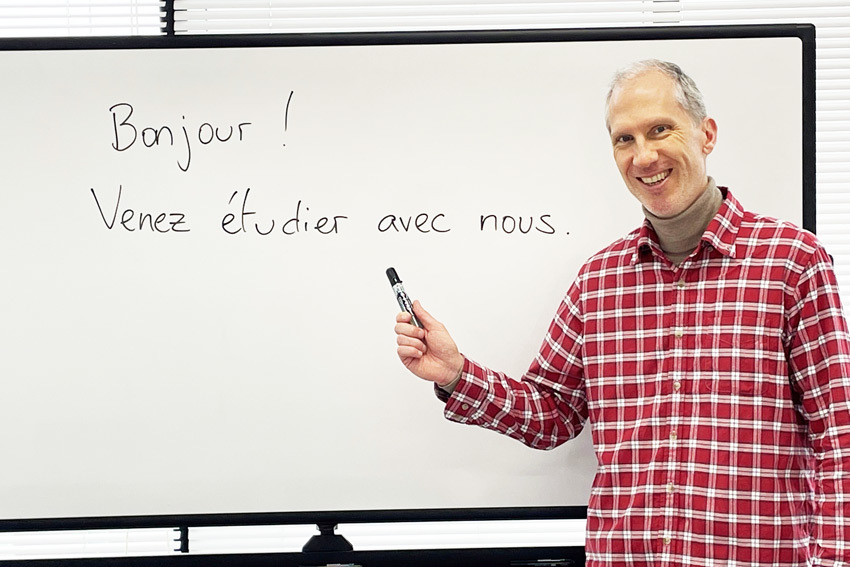 Bonjour !
Venez étudier avec nous.